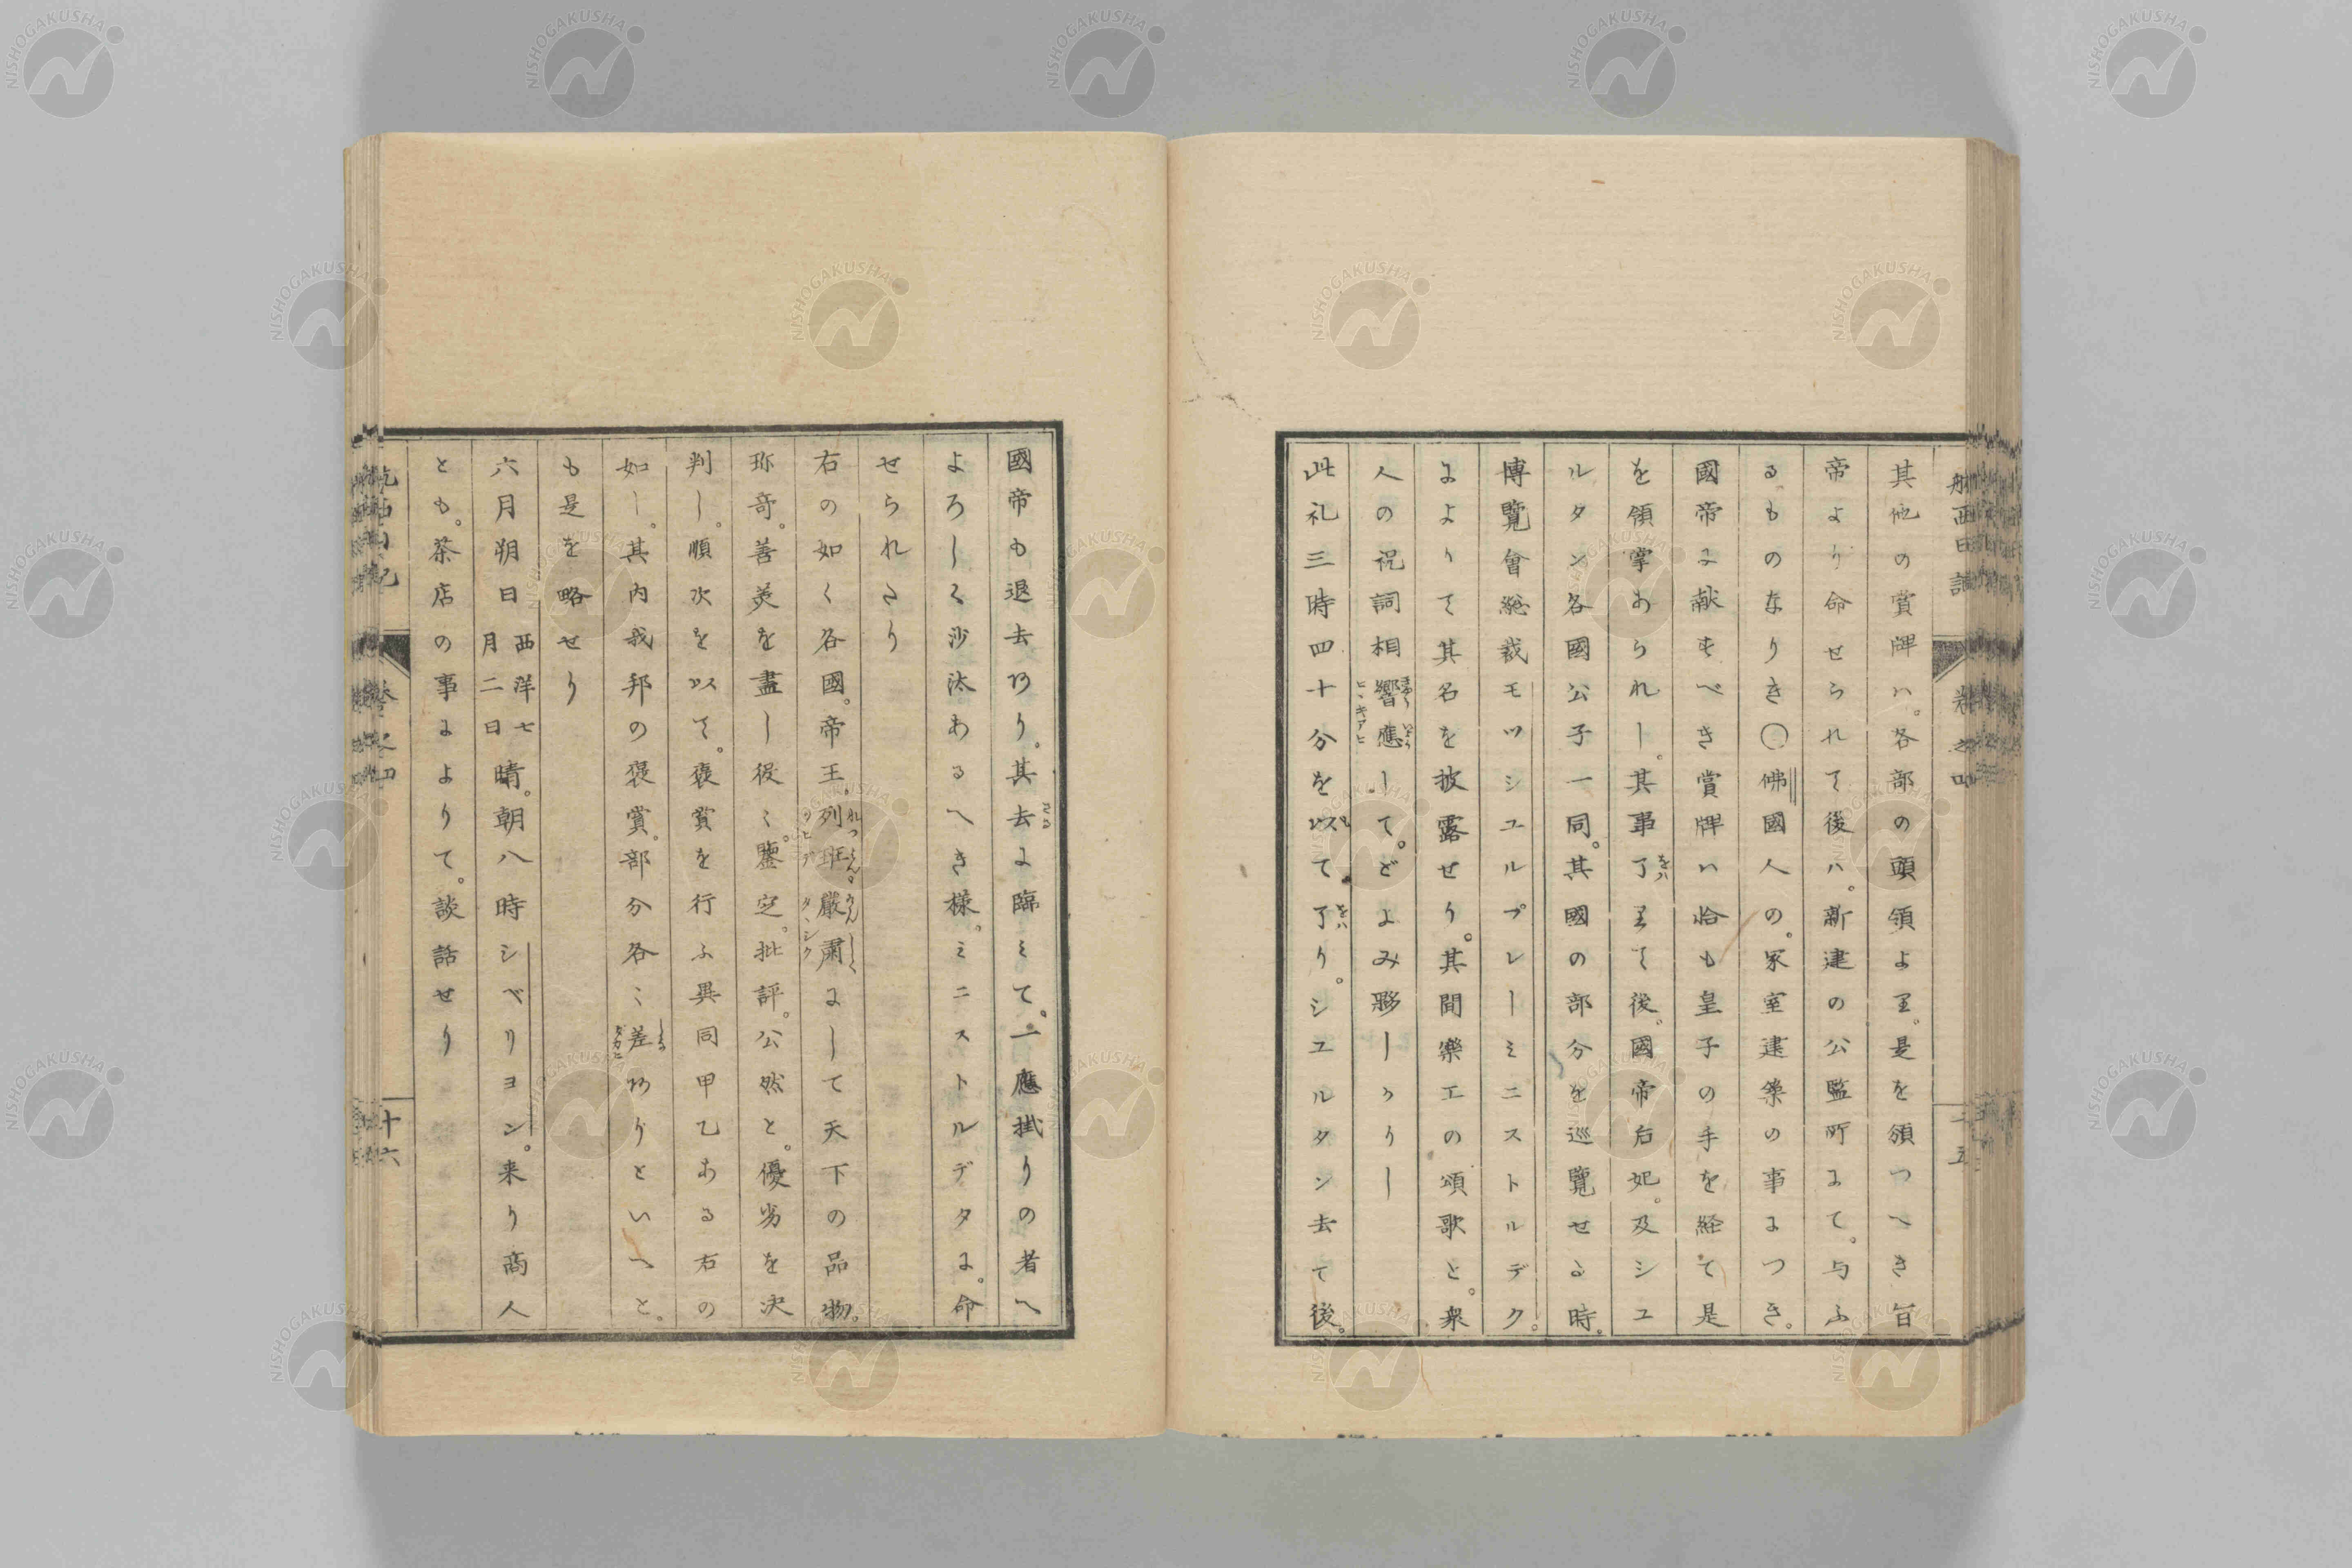 航西日記 卷之四
其他の賞牌ハ。各部の頭領より。是を領つへき旨
帝より命せられて後ハ。新建の公監所にて。与ふ
るものなりき〇佛國人の。家室建築の事につき。
國帝に献すべき賞牌ハ恰も皇子の手を経て是
を領掌あられし。其事了りて後。國帝后妃。及シユ
ルタン各國公子一同。其國の部分を巡覽せる時。
博覽會総裁モツシユルプレーミニストルデク。
によりて其名を披露せり。其間樂工の頌歌と。衆
人の祝詞相響應して。どよみ夥しかりし
此礼三時四十分を以て了り。シユルタン去て後。
國帝も退去あり。其去に臨ミて。一應掛りの者へ
よろしく沙汰あるへき様。ミニストルデタに。命
せられたり
右の如く各國。帝王。列班。嚴肅にして天下の品物。
珎奇。善美を盡し役〻。鑒定。批評。公然と。優劣を決
判し。順次を以て。褒賞を行ふ異同甲乙ある右の
如し。其内我邦の褒賞。部分各〻差ありといへと。
も是を略せり
六月朔日 西洋七月二日 晴。朝八時シベリヨン。来り商人
とも。茶店の事によりて。談話せり
十六
NISHOGAKUSHA